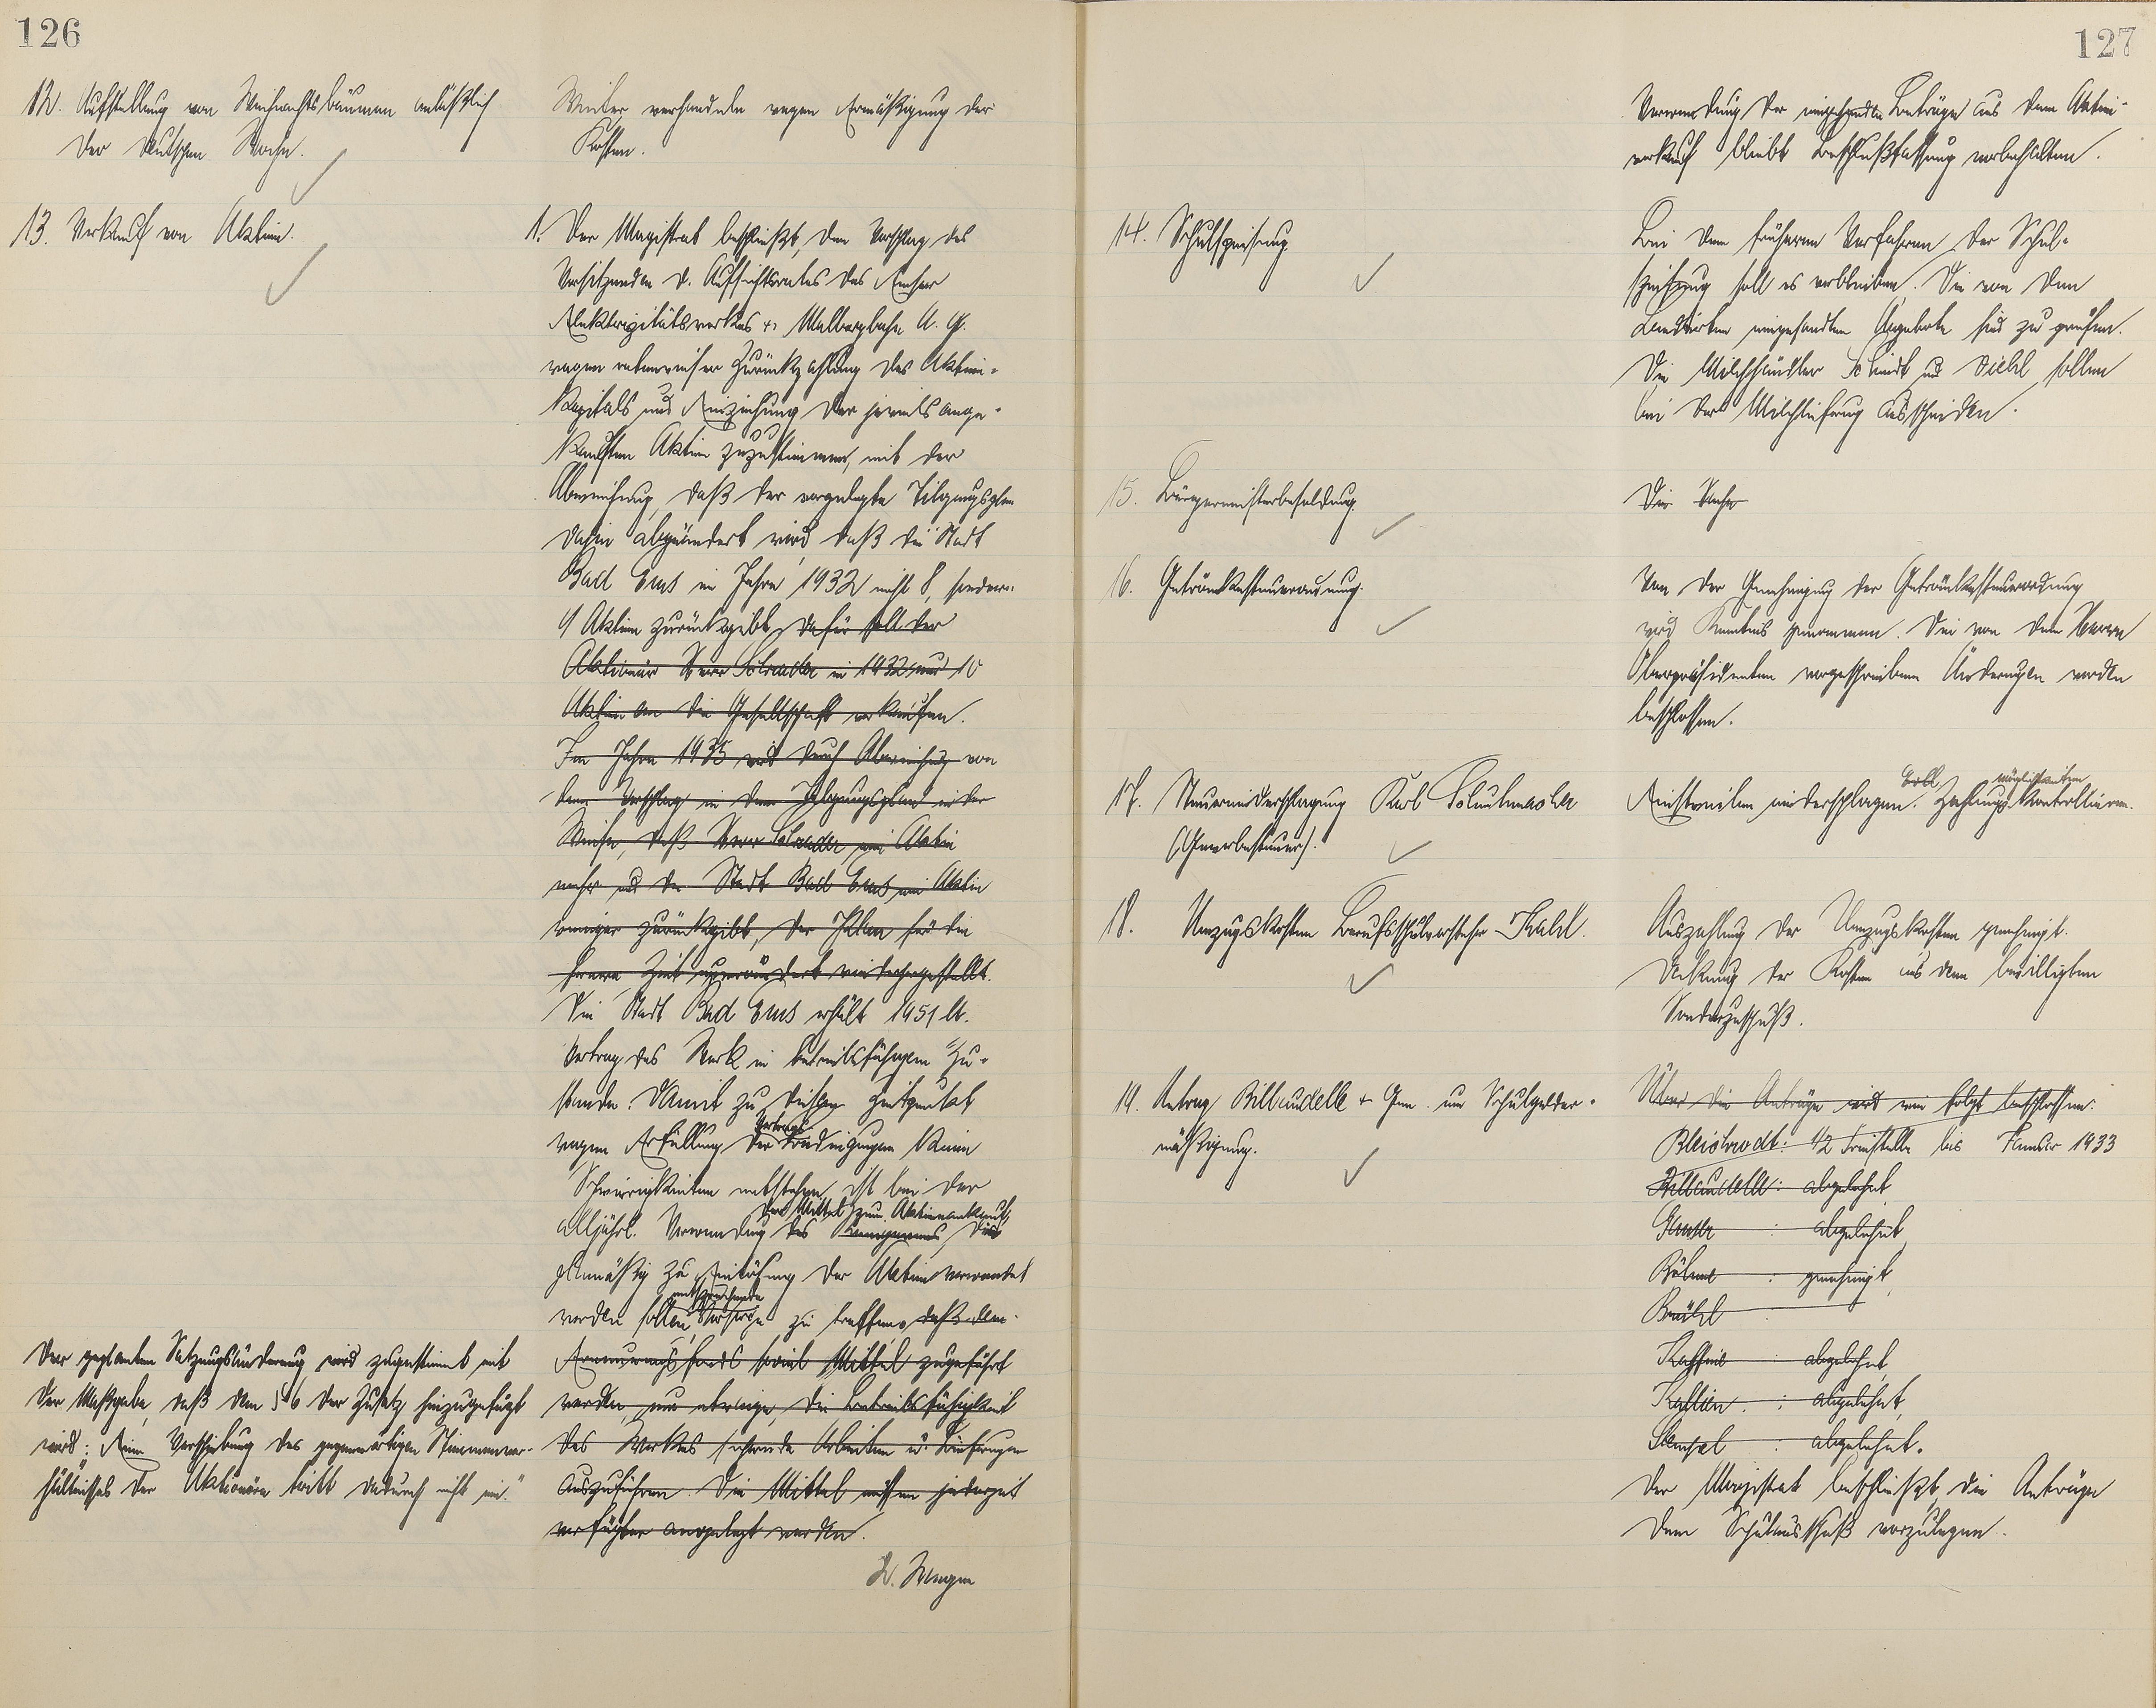 126
12. Aufstellung von Weihnachtsbäumen anläßlich
der Deutschen Woche.
Weiter verhandeln wegen Ermäßigung der
Kosten.
13. Verkauf von Aktien.
1. Der Magistrat beschließt, dem Vorschlag des
Vorsitzenden d. Aufsichtsrates des Emser
Elektrizitätswerkes u. Malbergbahn A. G.
wegen ratenweiser Zurückzahlung des Aktien-
kapitals und Einziehung der jeweils ange-
kauften Aktien zuzustimmen, mit der
Abweichung, daß der vorgelegte Tilgungsplan
dahin abgeändert wird, daß die Stadt
Bad Ems im Jahre 1932 nicht 8, sondern
9 Aktien zurückgibt, dafür soll der
Aktionär Herr Schrader in 1932 nur 10
Aktien an die Gesellschaft verkaufen.
Im Jahre 1935 wird durch Abweichung von
dem Vorschlag in dem Tilgungsplan in der
Weise, daß Herr Schrader eine Aktie
mehr und die Stadt Bad Ems eine Aktie
weniger zurückgibt, der Plan für die
fernere Zeit unverändert wiederhergestellt.
Die Stadt Bad Ems erhält 1951 lt.
Vertrag das Werk in betriebsfähigem Zu-
stande. Damit zu diesem Zeitpunkt
wegen Erfüllung der Vertragsbedingungen keine
Schwierigkeiten entstehen, ist bei der
der Mittel zum Aktienankauf,
alljährl. Verwendung des die
planmäßig zu Einlösung der Aktien verwendet
entsprechende
werden sollen, Vorsorge zu treffen, daß dem
Erneuerungsfonds soviel Mittel zugeführt
werden, um etwaige, die Betriebsfähigkeit
des Werkes sichernde Arbeiten u. Lieferungen
auszuführen. Die Mittel müssen jederzeit
verfügbar angelegt werden.
Der geplanten Satzungsänderung wird zugestimmt mit
der Maßgabe, daß dem § 6 der Zusatz hinzugefügt
wird: „Eine Verschiebung des gegenwärtigen Stimmenver-
hältnisses der Aktionäre tritt dadurch nicht ein."
127
Verwendung der eingehenden Beträge aus dem Aktien-
verkauf bleibt Beschlußfassung vorbehalten.
14. Schulspeisung
Bei dem früheren Verfahren der Schul-
speisung soll es verbleiben. Die von den
Landwirten eingesandten Angebote sind zu prüfen.
Die Milchhändler Schmidt und Diehl sollen
bei der Milchlieferung ausscheiden.
15. Bürgermeisterbesoldung.
Die Sache
16. Getränkesteuerordnung.
Von der Genehmigung der Getränkesteuerordnung
wird Kenntnis genommen. Die von dem Herrn
Oberpräsidenten vorgeschriebenen Änderungen werden
beschlossen.
17. Steuerniederschlagung Karl Schuhmacher
(Gewerbesteuer).
möglichkeiten
Einstweilen niederschlagen. Zahlungs kontrollieren.
18. Umzugskosten Berufsschulvorsteher Kahl.
Auszahlung der Umzugskosten genehmigt.
Deckung der Kosten aus dem bewilligten
Sonderzuschuß.
19. Antrag Billaudelle u. Gen. um Schulgelder-
mäßigung.
Über die Anträge wird wie folgt beschlossen:
Bleichrodt: 1/2 Freistelle bis Januar 1933
Billaudelle: abgelehnt,
: abgelehnt,
: genehmigt,
: abgelehnt,
: abgelehnt,
: abgelehnt.
Der Magistrat beschließt, die Anträge
dem Schulausschuß vorzulegen.